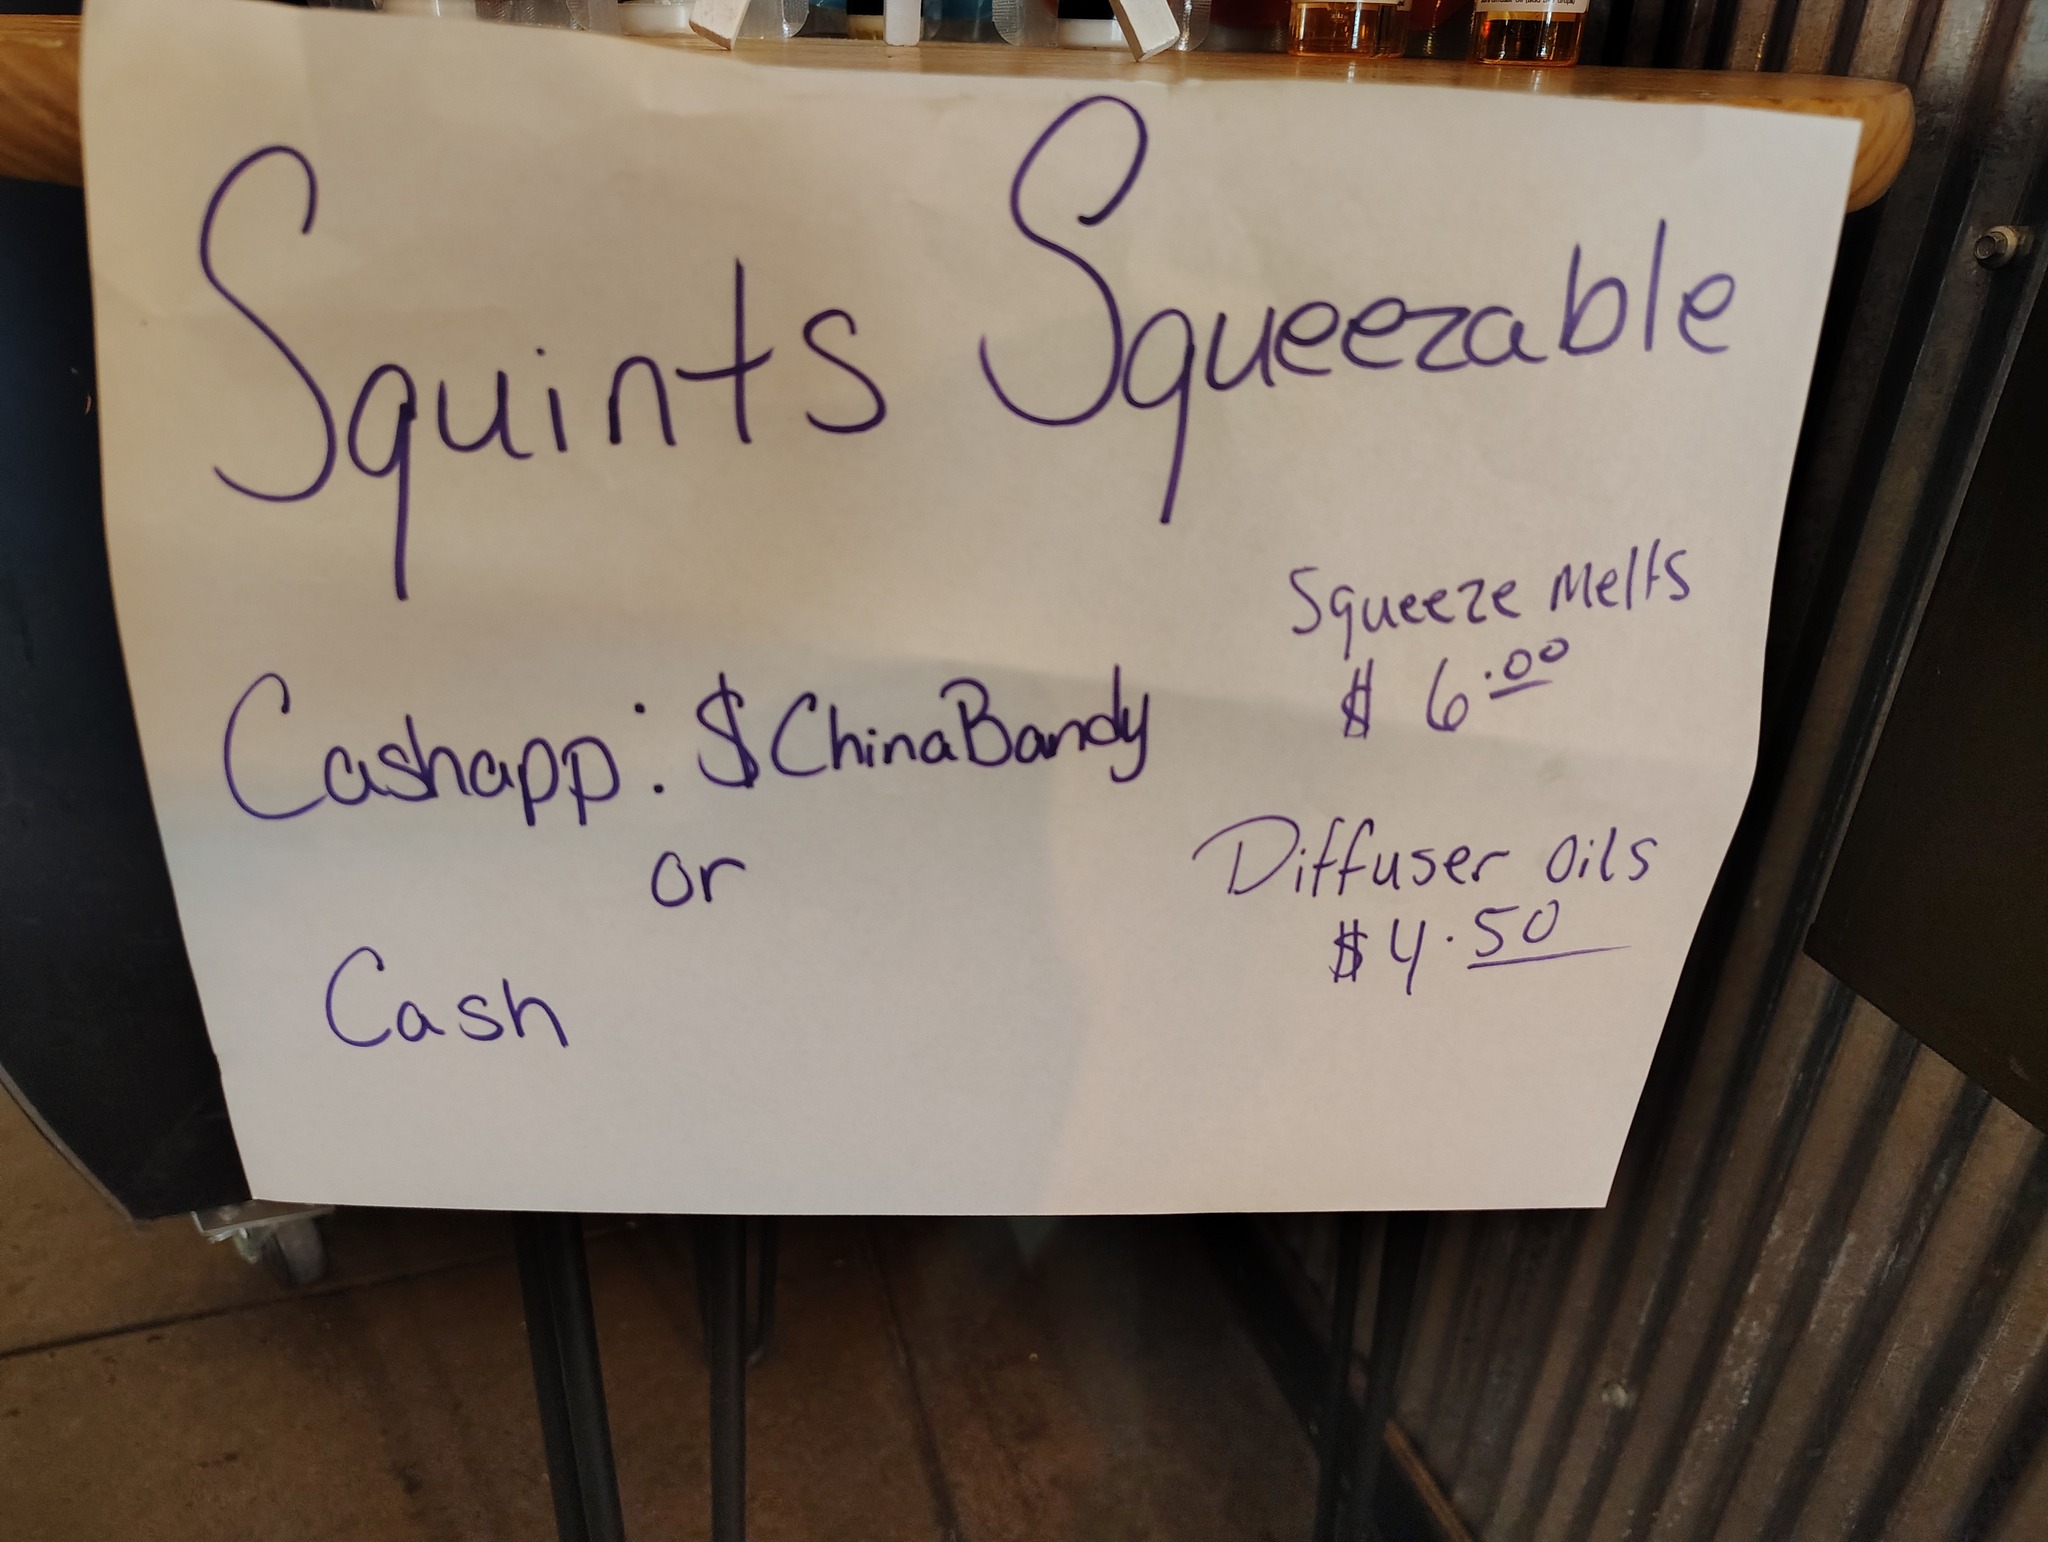 Squints Squeezable
Squeeze Melts
$ 6.00
Cashapp: $ChinaBandy
or
Cash
Diffuser Oils
$4.50